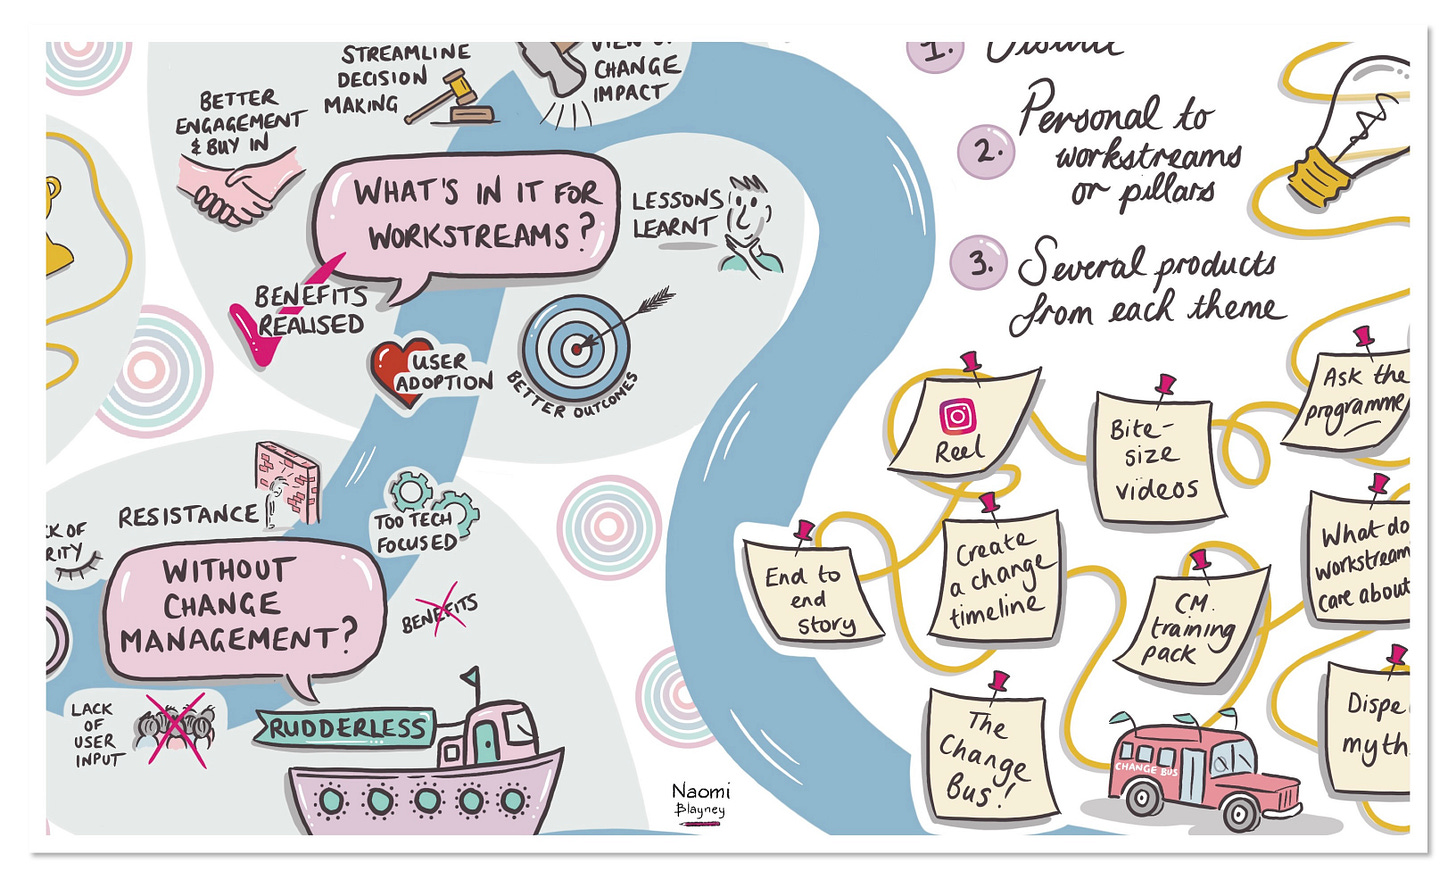 STREAMLINE
DECISION
MAKING
CHANGE
IMPACT
BETTER
ENGAGEMENT
& BUY IN
WHAT'S IN IT FOR
WORKSTREAMS?
LESSONS
LEARNT
BENEFITS
REALISED
USER
ADOPTION
BETTER OUTCOMES
RESISTANCE
TOO TECH
FOCUSED
OF
WITHOUT
CHANGE
MANAGEMENT?
BENEFITS
LACK
OF
USER
INPUT
RUDDERLESS
Naomi
Blayney
1.
2.
Personal to
workstreams
or pillars
3.
Several products
from each theme
Reel
Bite-
size
videos
Ask the
programme
End to
end
story
Create
a change
timeline
CM.
training
pack
What do
workstream
care about
The
Change
Bus!
CHANGE BUS
Dispe
myth